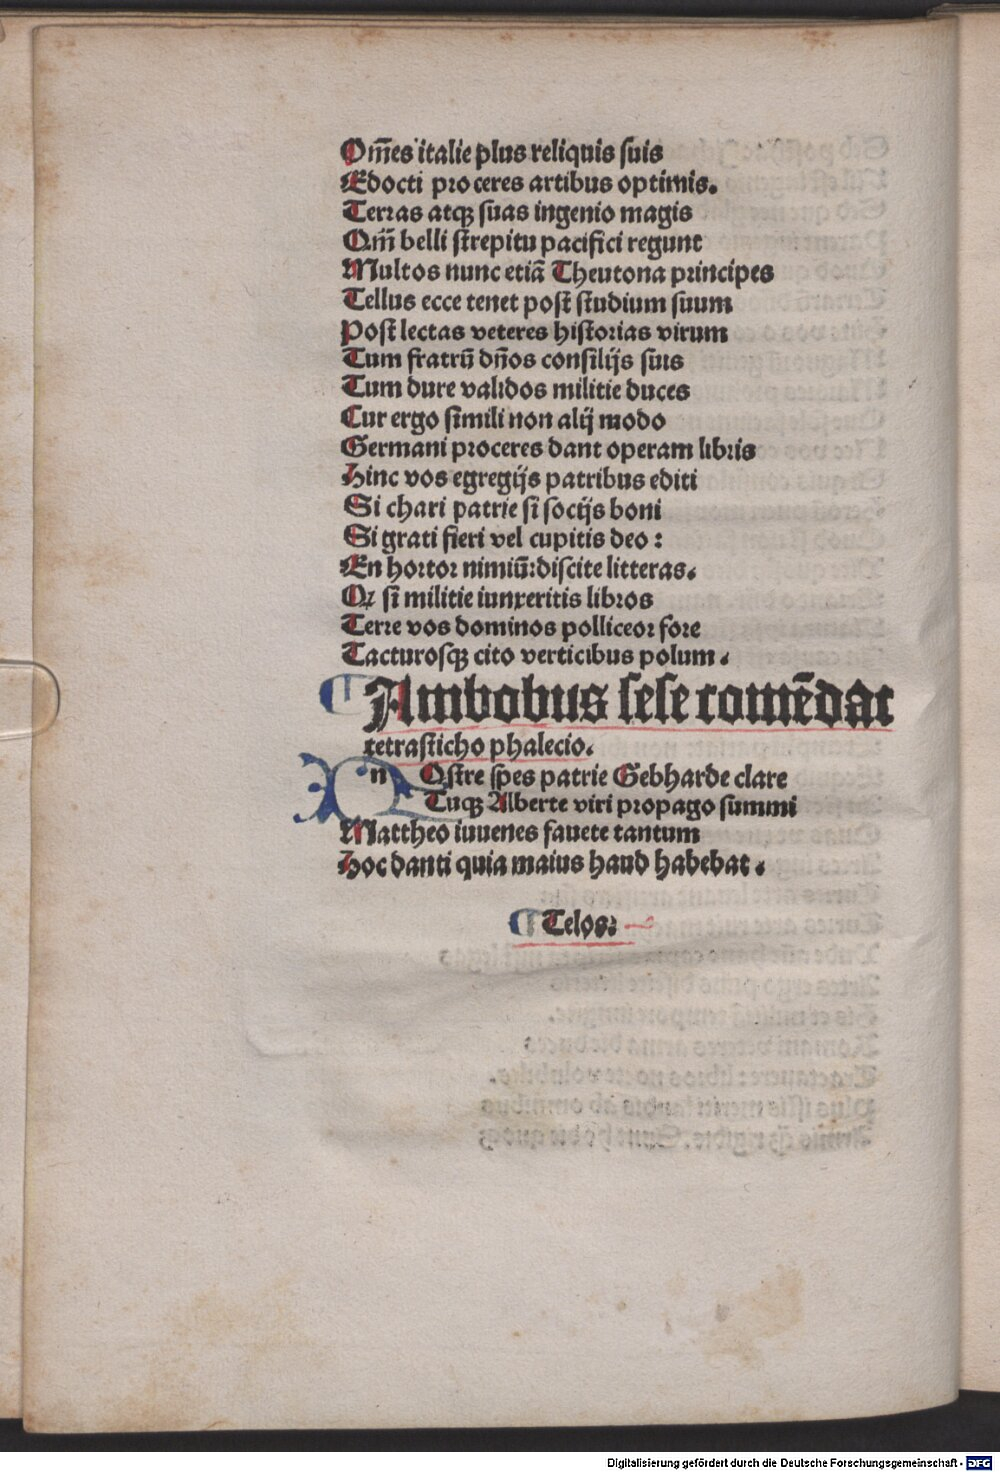 Om̄es italie plus reliquis suis
Edocti proceres artibus optimis.
Terras atqꝫ suas ingenio magis
Qm̄ belli strepitu pacifici regunt
Multos nunc etiā Theutona principes
Tellus ecce tenet post studium suum
Post lectas veteres historias virum
Tum fratrū dn̄os consilijs suis
Tum dure validos militie duces
Cur ergo simili non alij modo
Germani proceres dant operam libris
Hinc vos egregijs patribus editi
Si chari patrie si socijs boni
Si grati fieri vel cupitis deo:
En hortor nimiū:discite litteras.
Qꝛ si militie iunxeritis libros
Terre vos dominos polliceor fore
Tacturosqꝫ cito verticibus polum.
¶ Ambobus sese comēdat
tetrasticho phalecio.
n Ostre spes patrie Gebharde clare
Tuqꝫ Alberte viri propago summi
Mattheo iuvenes favete tantum
Hoc danti quia maius haud habebat.
¶ Telos:
Digitalisierung gefördert durch die Deutsche Forschungsgemeinschaft - DFG